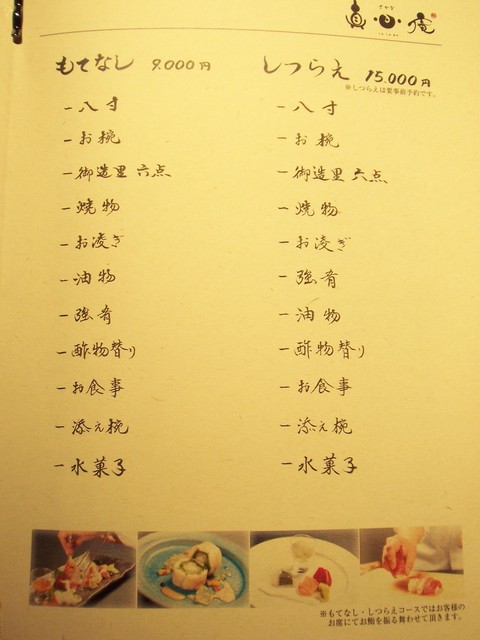 真心庵
もてなし 9.000円
一 八寸
一 お椀
一 御造里 六点
一 焼物
一 お凌ぎ
一 油物
一 強肴
一 酢物替り
一 お食事
一 添え椀
一 水菓子
しつらえ 15.000円
※しつらえは要事前予約です。
一 八寸
一 お椀
一 御造里 六点
一 焼物
一 お凌ぎ
一 強肴
一 油物
一 酢物替り
一 お食事
一 添え椀
一 水菓子
※もてなし・しつらえコースではお客様の
お席にてお鮨を振る舞わせて頂きます。